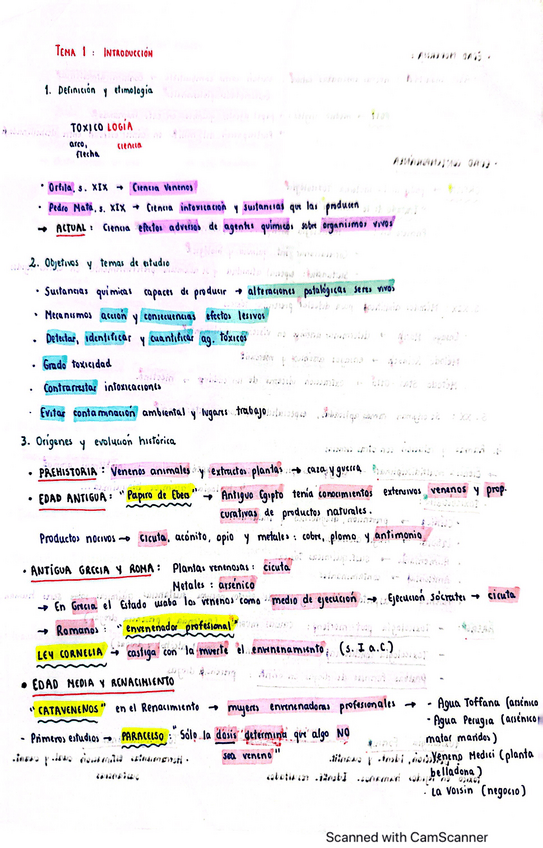 TEMA 1 : INTRODUCCIÓN
1. Definición y etimología
TOXICO LOGÍA
arco, ciencia
flecha
· Orfila, s. XIX → Ciencia venenos
· Pedro Mata, s. XIX → Ciencia intoxicación y sustancias que las producen
→ ACTUAL : Ciencia efectos adversos de agentes químicos sobre organismos vivos
2. Objetivos y temas de estudio
· Sustancias químicas capaces de producir → alteraciones patológicas seres vivos
· Mecanismos acción y consecuencias efectos lesivos
· Detectar, identificar y cuantificar ag. tóxicos
· Grado toxicidad
· Contrarrestar intoxicaciones
· Evitar contaminación ambiental y lugares trabajo
3. Orígenes y evolución histórica
· PREHISTORIA : Venenos animales y extractos plantas → caza y guerra
· EDAD ANTIGUA : "Papiro de Ebers" → Antiguo Egipto tenía conocimientos extensivos venenos y prop.
curativas de productos naturales.
Productos nocivos → cicuta, acónito, opio y metales : cobre, plomo y antimonio
· ANTIGUA GRECIA Y ROMA : Plantas venenosas : cicuta
Metales : arsénico
→ En Grecia el Estado usaba los venenos como medio de ejecución → Ejecución Sócrates → cicuta
→ Romanos : "envenenador profesional"
LEY CORNELIA → castiga con la muerte el envenenamiento (s. I a.C.)
• EDAD MEDIA Y RENACIMIENTO
"CATAVENENOS" en el Renacimiento → mujeres envenenadoras profesionales → - Agua Toffana (arsénico
- Agua Perugia (arsénico,
- Primeros estudios → PARACELSO : "Sólo la dosis determina que algo NO
matar maridos)
sea veneno"
- Veneno Medici (planta
belladona)
- La Voisin (negocio)
Scanned with CamScanner